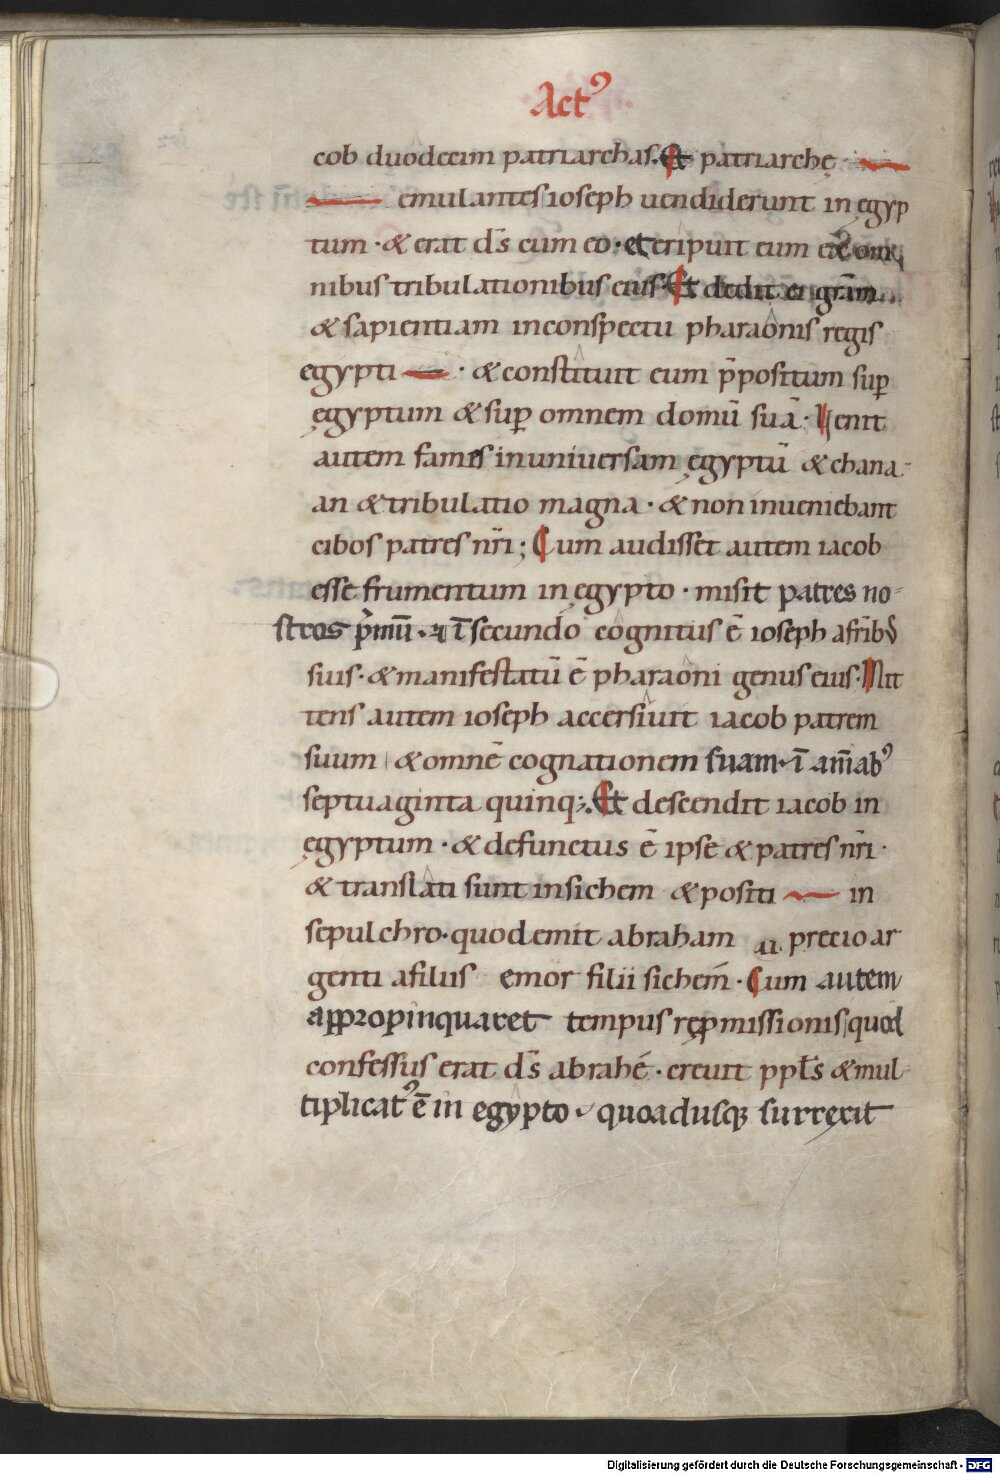 Act⁹
cob duodecim patriarchas. Et patriarchę
emulantes ioseph uendiderunt in egyp
tum · & erat dr̄s cum eo · et eripuit eum ex om
nibus tribulationibus eius · Et dedit ei grām
& sapientiam inconspectu pharaonis regis
egypti · & constituit eum p̄positum sup̱
ęgyptum & sup̱ omnem domū suā · Uenit
autem fames inuniuersam ęgyptū & chana-
an & tribulatio magna · & non inueniebant
cibos patres nr̄i ; Cum audisset autem iacob
esse frumentum in ęgypto · misit patres no-
stros p̄mū · & ī secundo cognitus ē ioseph afrīb;
suis · & manifestatū ē pharaoni genus eius · Mit
tens autem ioseph accersiuit iacob patrem
suum & omnē cognationem suam · ī anīab⁹
septuaginta quinq; · Et descendit iacob in
ęgyptum · & defunctus ē ipse & patres nr̄i ·
& translati sunt insichem & positi in
sepulchro · quod emit abraham precio ar
genti afiliis emor filii sichem · Cum autem
appropinquaret tempus rep̱missionis quod
confessus erat dr̄s abrahę · creuit ppl̄s & mul-
tiplicat⁹ ē in egypto · quoadusq; surrexit
Digitalisierung gefördert durch die Deutsche Forschungsgemeinschaft - DFG